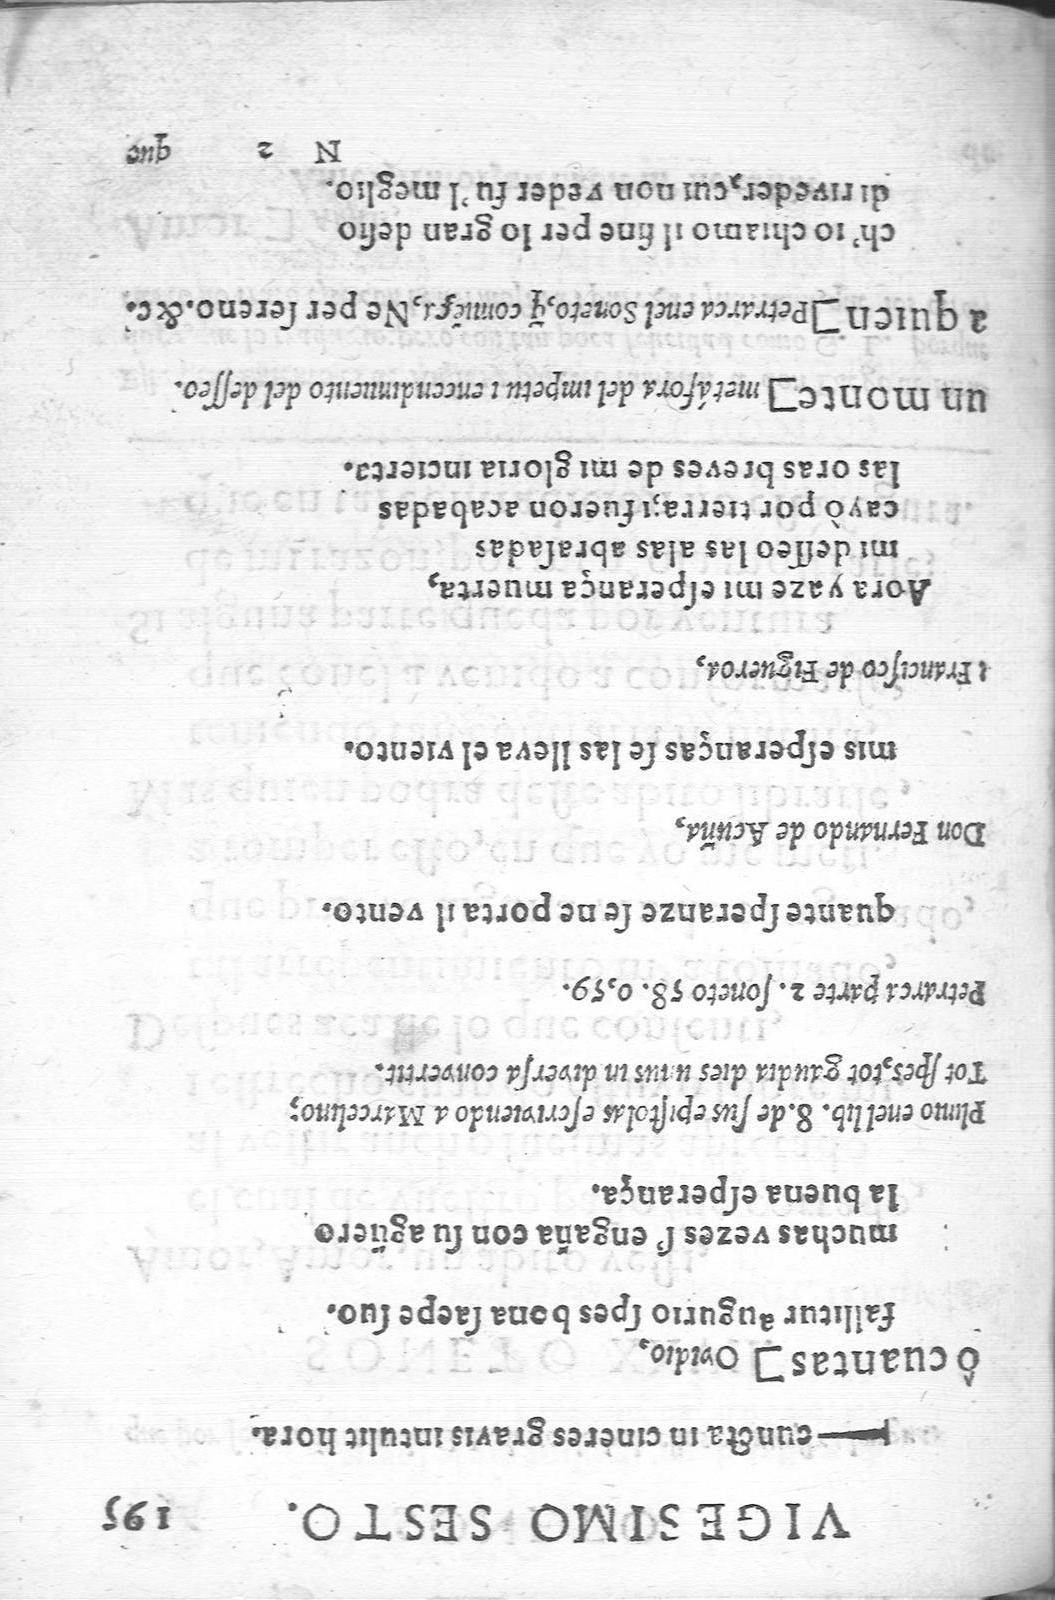 VIGESIMO SESTO. 195
cuncta in cineres gravis intulit hora.
ô cuantas] Ovidio,
fallitur augurio ſpes bona ſaepe ſuo.
muchas vezes ſ' engaña con ſu agüero
la buena eſperança.
Plinio enel lib. 8. de ſus epiſtolas eſcriviendo a Marcelino;
Tot ſpes, tot gaudia dies unus in diverſa convertit.
Petrarca parte 2. ſoneto 58. o, 59.
quante ſperanze ſe ne porta il vento.
Don Fernando de Acuña,
mis eſperanças ſe las lleva el viento.
i Franciſco de Figueroa,
Aora yaze mi eſperança muerta,
mi deſſeo las alas abraſadas
cayò por tierra; i fueron acabadas
las oras breves de mi gloria incierta.
un monte] metáfora del impetu i encendimiento del deſſeo.
a quien] Petrarca enel Soneto, q̃ comiẽça, Ne per ſereno. &c.
ch' io chiamo il fine per lo gran deſio
di riveder, cui non veder fu 'l meglio.
N 2 que